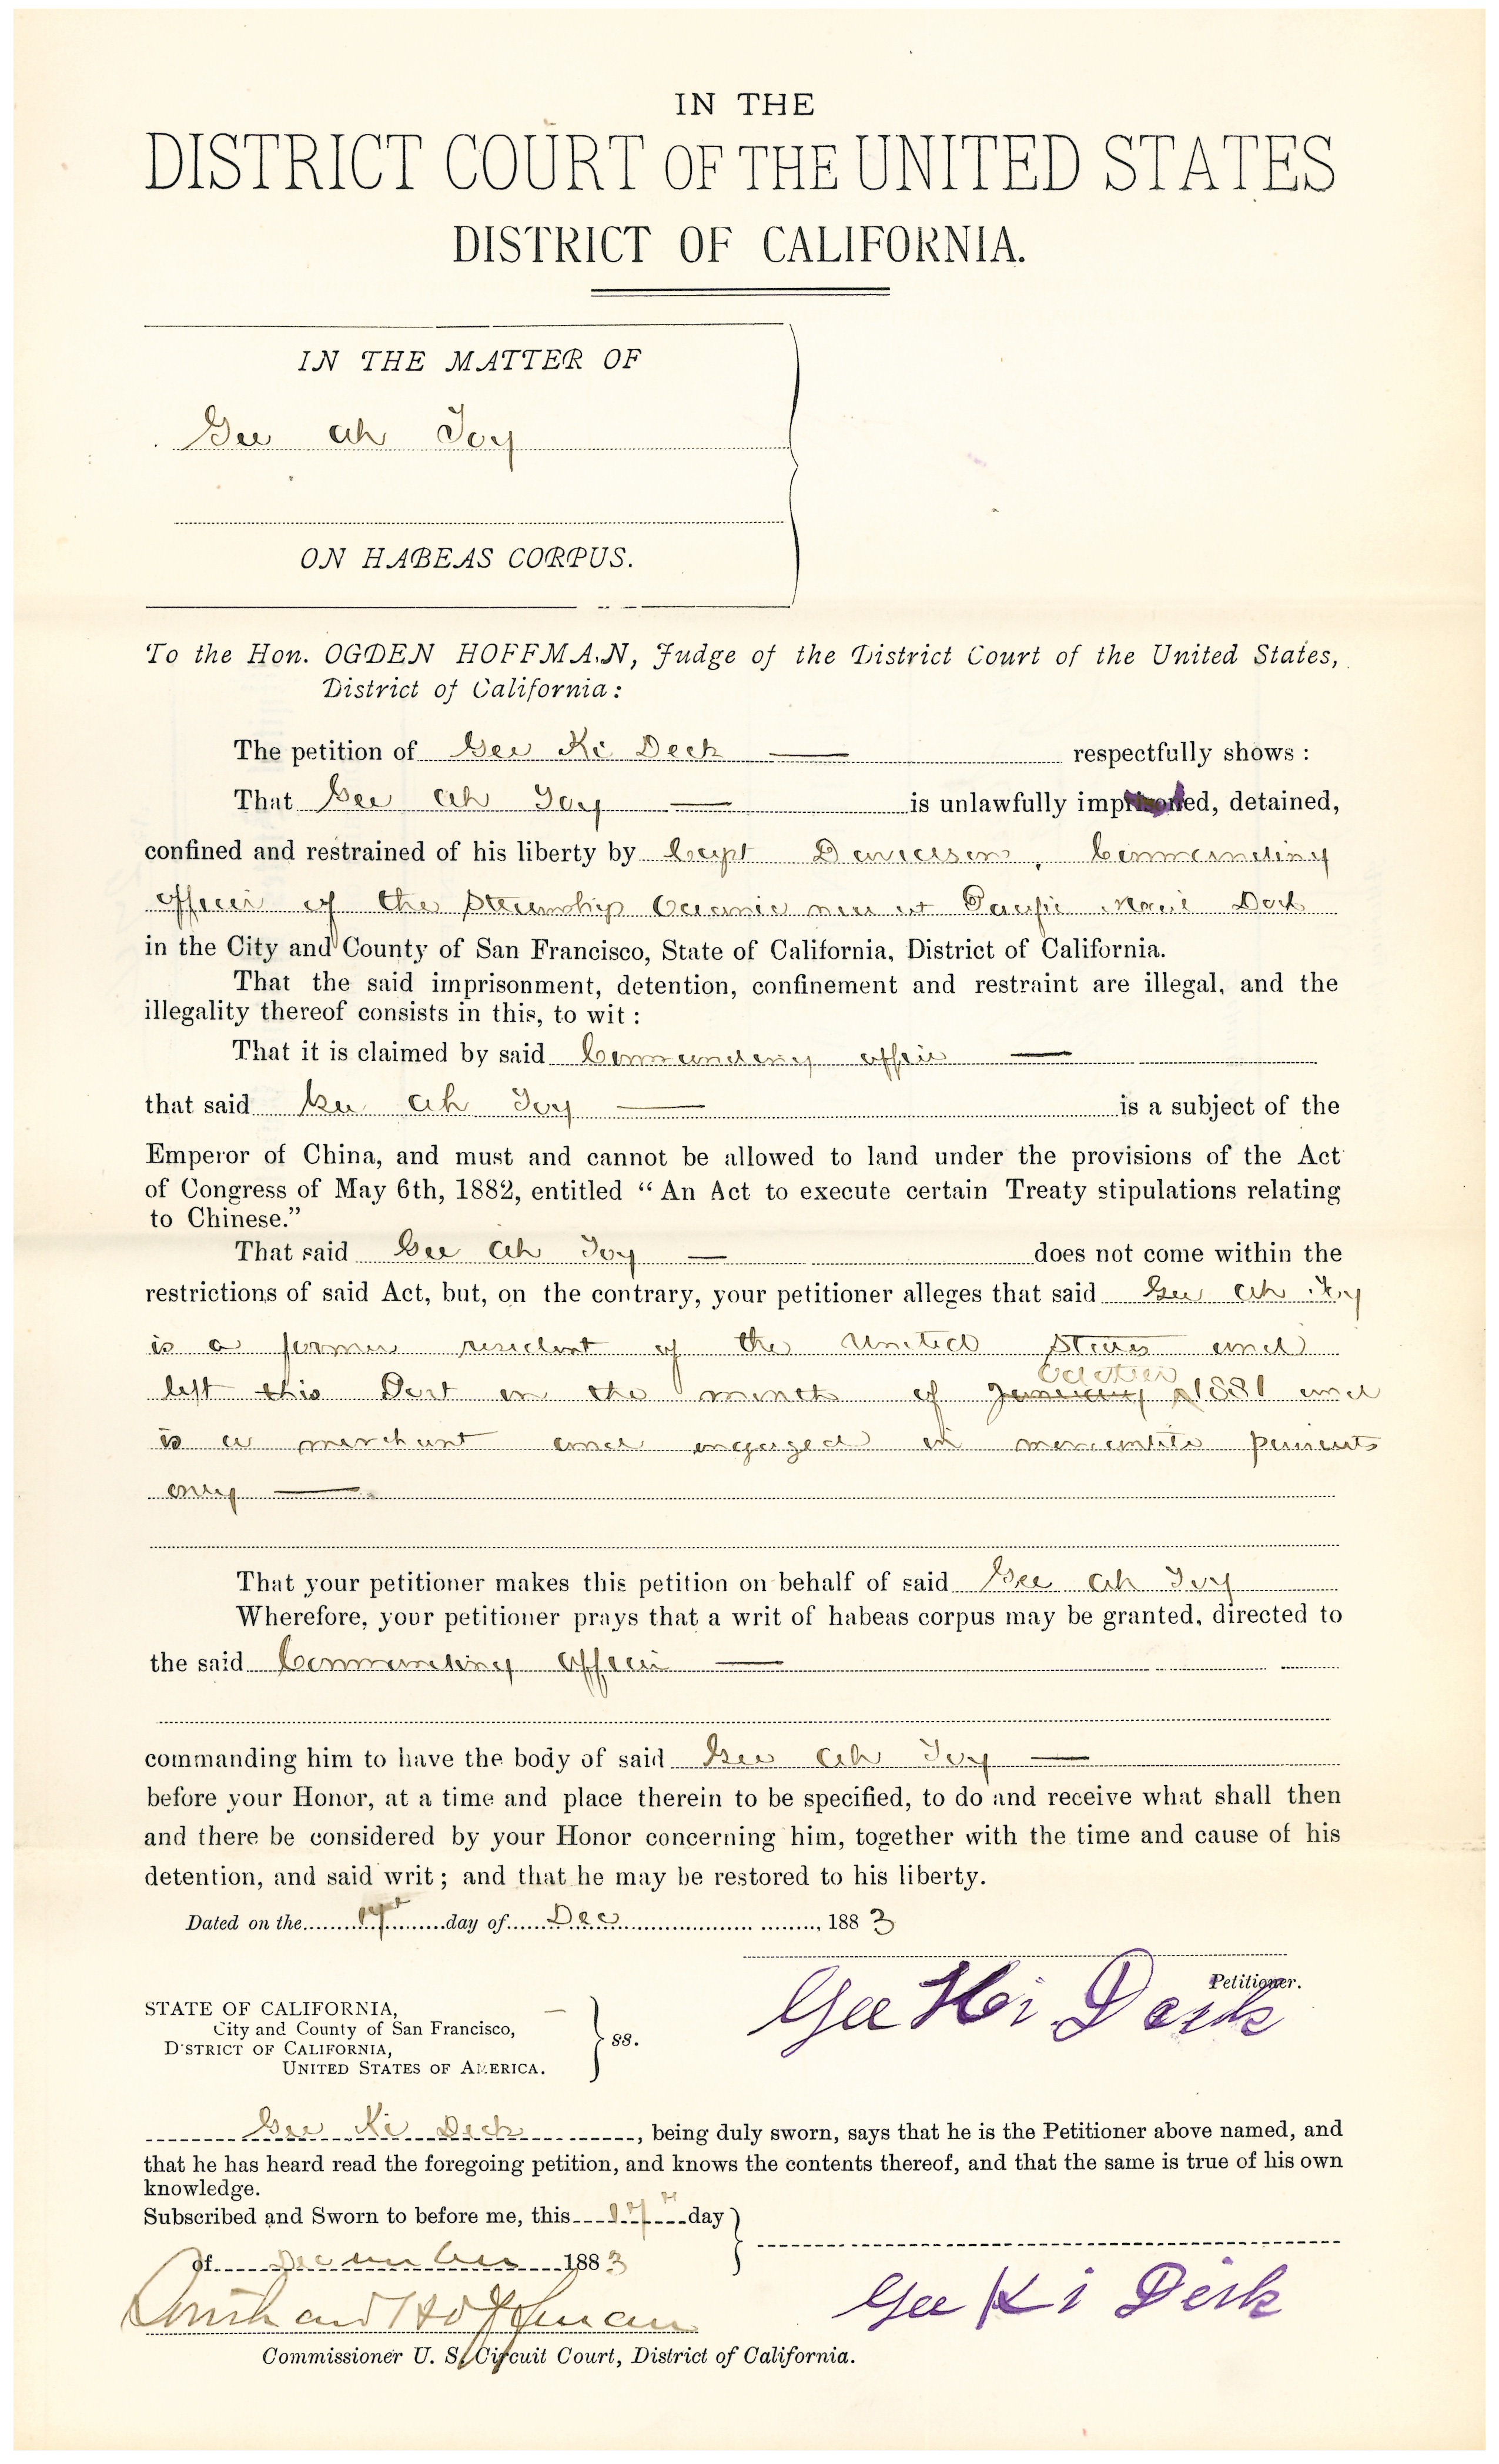 IN THE
DISTRICT COURT OF THE UNITED STATES
DISTRICT OF CALIFORNIA.
IN THE MATTER OF
Gee Ah Toy
ON HABEAS CORPUS.
To the Hon. OGDEN HOFFMAN, Judge of the District Court of the United States,
District of California:
The petition of Gee Ki Deck — respectfully shows:
That Gee Ah Toy — is unlawfully imprisoned, detained,
confined and restrained of his liberty by Capt Davidson, Commanding
officer of the Steamship Oceanic now at Pacific Mail Dock
in the City and County of San Francisco, State of California, District of California.
That the said imprisonment, detention, confinement and restraint are illegal, and the
illegality thereof consists in this, to wit:
That it is claimed by said Commanding officer —
that said Gee Ah Toy — is a subject of the
Emperor of China, and must and cannot be allowed to land under the provisions of the Act
of Congress of May 6th, 1882, entitled "An Act to execute certain Treaty stipulations relating
to Chinese."
That said Gee Ah Toy — does not come within the
restrictions of said Act, but, on the contrary, your petitioner alleges that said Gee Ah Toy
is a former resident of the United States and
October
left this Port in the month of January 1881 and
is a merchant and engaged in mercantile pursuits
only —
That your petitioner makes this petition on behalf of said Gee Ah Toy
Wherefore, your petitioner prays that a writ of habeas corpus may be granted, directed to
the said Commanding officer —
commanding him to have the body of said Gee Ah Toy —
before your Honor, at a time and place therein to be specified, to do and receive what shall then
and there be considered by your Honor concerning him, together with the time and cause of his
detention, and said writ; and that he may be restored to his liberty.
Dated on the 17th day of Dec, 1883
Petitioner.
Gee Ki Deck
STATE OF CALIFORNIA,
City and County of San Francisco,
DISTRICT OF CALIFORNIA,
UNITED STATES OF AMERICA.
ss.
Gee Ki Deck, being duly sworn, says that he is the Petitioner above named, and
that he has heard read the foregoing petition, and knows the contents thereof, and that the same is true of his own
knowledge.
Subscribed and Sworn to before me, this 17th day
of December 1883
Southard Hoffman
Gee Ki Deck
Commissioner U. S. Circuit Court, District of California.